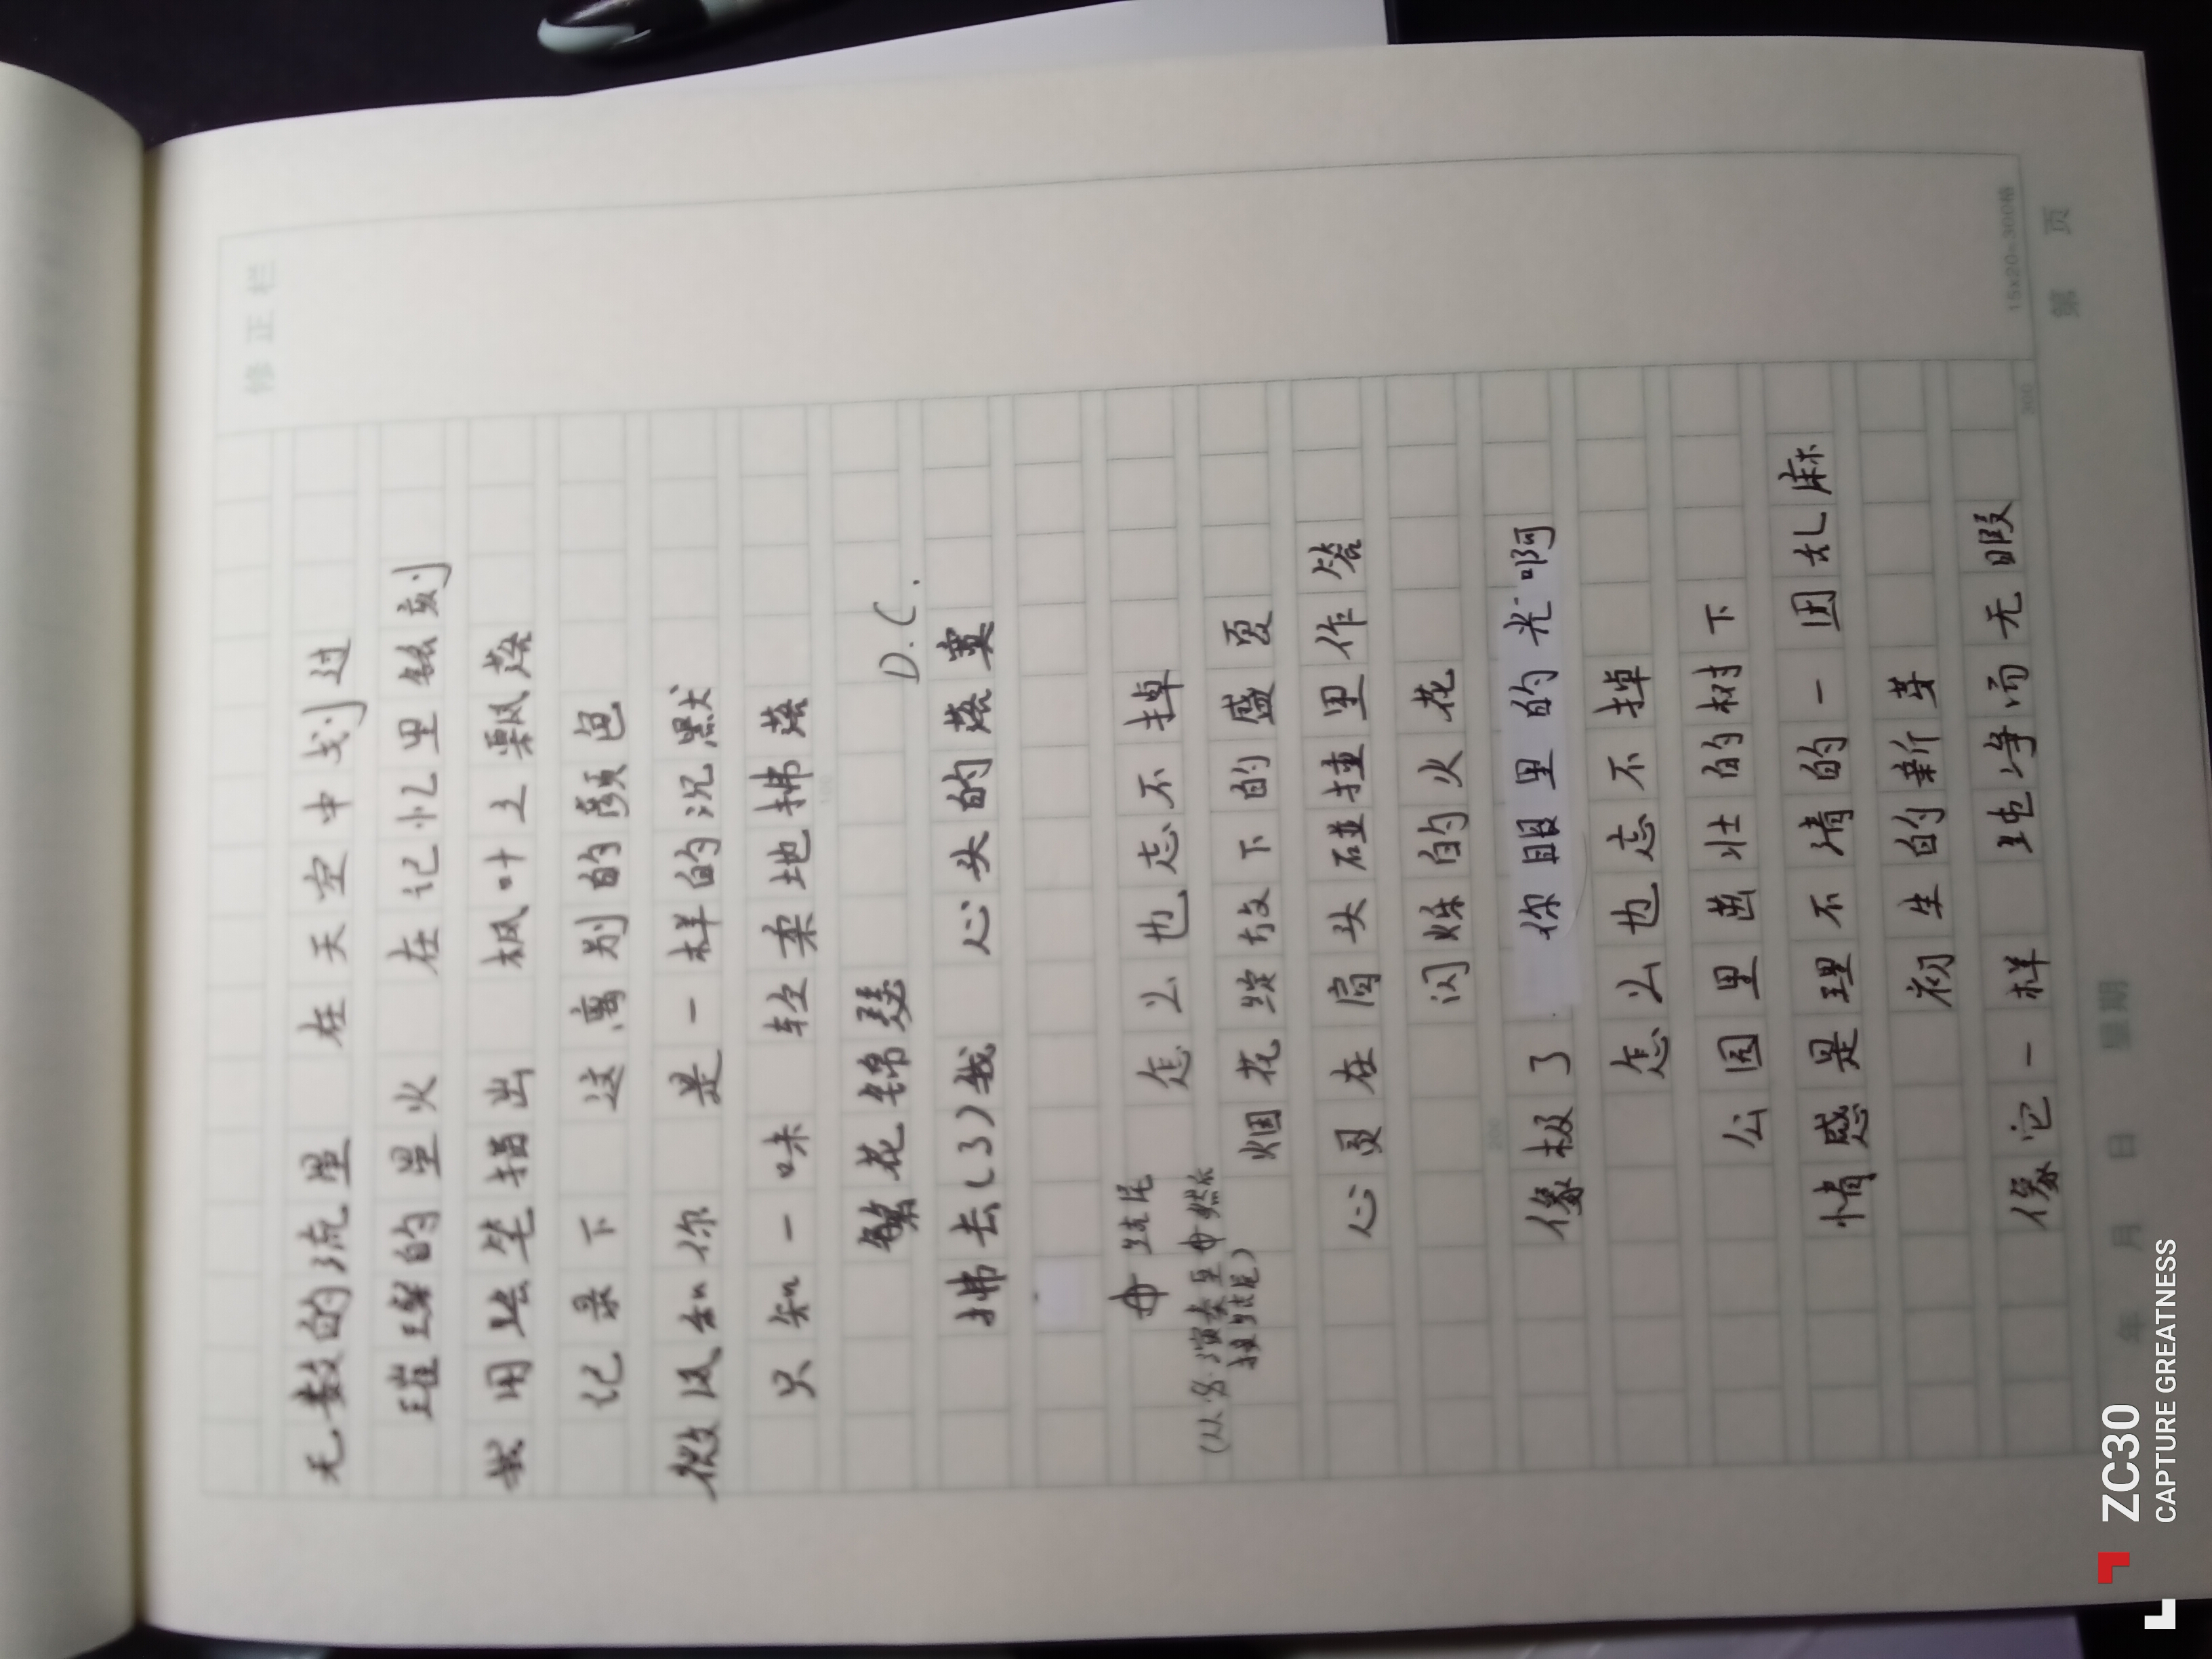 修正栏
无数的流星 在天空中划过
璀璨的星火 在记忆里铭刻
我用坠笔描出 枫叶上飘落
记录下 这离别的颜色
微风和你 是一样的沉默
只知一味 轻柔地拂落
繁花锦瑟 D.C.
拂去(3)我 心头的落寞
结尾 怎么也忘不掉
(从%演奏至 然后接结尾)
烟花绽放下的盛夏
心灵在窗头碰撞里作答
闪烁的火花
像极了 你眼里的光啊
怎么也忘不掉
公园里茁壮的树下
情感是理不清的一团乱麻
初生的新芽
像它一样 纯净而无暇
100
200
300
15x20=300格
年 月 日 星期 第 页
ZC30
CAPTURE GREATNESS